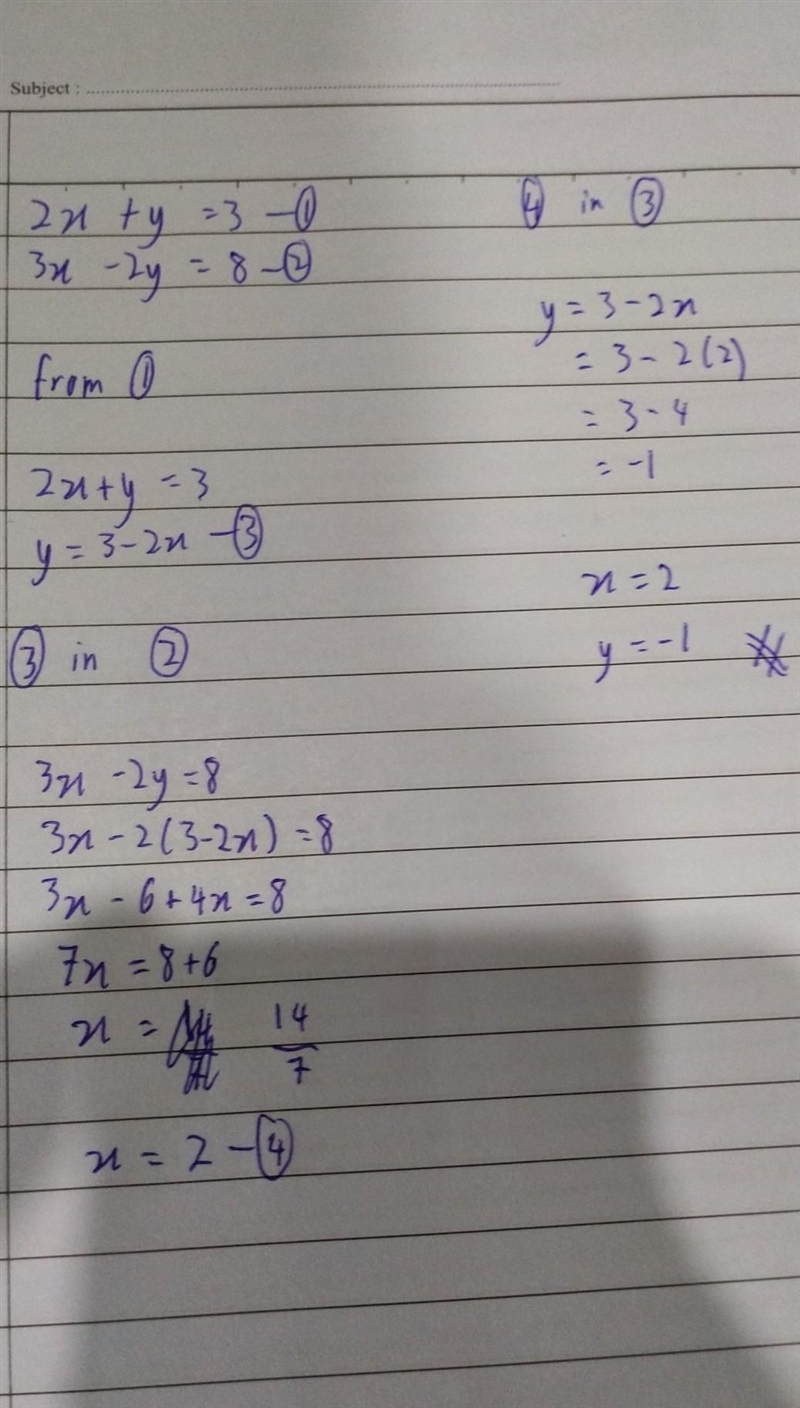 Subject :
2x + y = 3 — ①
3x - 2y = 8 — ②
from ①
2x + y = 3
y = 3 - 2x — ③
③ in ②
3x - 2y = 8
3x - 2(3 - 2x) = 8
3x - 6 + 4x = 8
7x = 8 + 6
x = 14/7
x = 2 — ④
④ in ③
y = 3 - 2x
= 3 - 2(2)
= 3 - 4
= -1
x = 2
y = -1